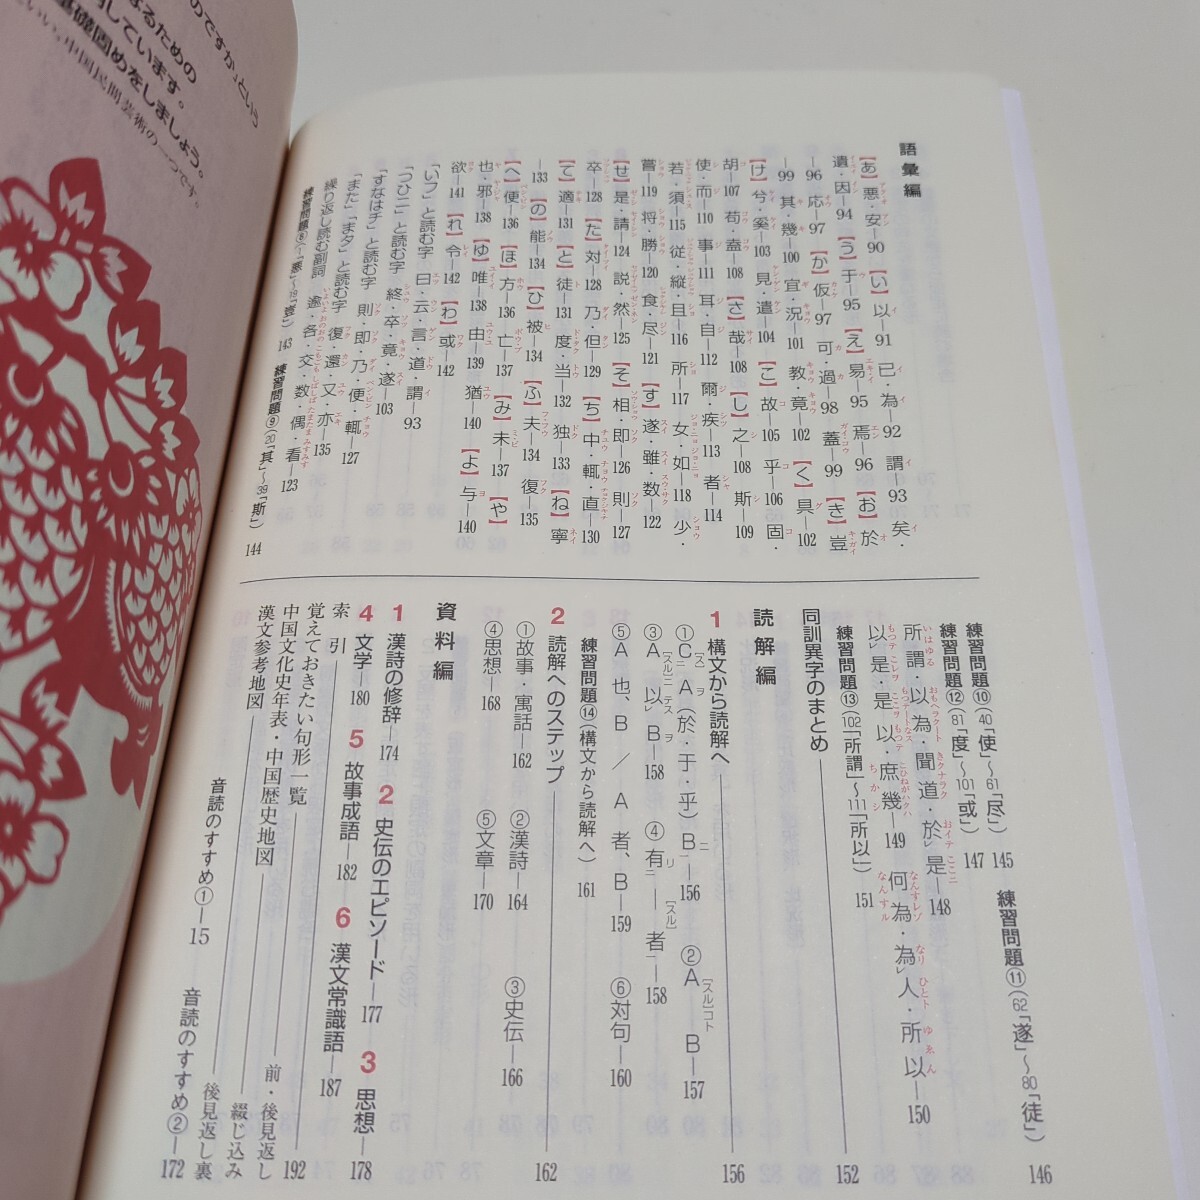 のですか」という
なるための
用しています。
基礎固めをしましょう。
といい、中国民間芸術の一つです。
語彙編
【あ】悪・安―90 【い】以―91 已・為―92 謂―93 矣・
遺・因―94 【う】于―95 【え】易―95 焉―96 【お】於
―96 応―97 【か】仮―97 可・過―98 蓋―99 【き】豈
―99 其・幾―100 宜・況―101 教・竟―102 【く】具―102
【け】兮・奚―103 見・遣―104 【こ】故―105 乎―106 固・
胡―107 苟・盍―108 【さ】哉―108 【し】之―108 斯―109
使・而―110 事―111 耳・自―112 爾・疾―113 者―114
若・須―115 従・縦・且―116 所―117 女・如―118 少・
嘗―119 将・勝―120 食・尽―121 【す】遂・雖・数―122
【せ】是・請―124 説・然―125 【そ】相・即―126 則―127
卒―128 【た】対―128 乃・但―129 【ち】中・輒・直―130
【て】適―131 【と】徒―131 度・当―132 独―133 【ね】寧
―133 【の】能―134 【ひ】被―134 【ふ】夫―134 復―135
【へ】便―136 【ほ】方―136 亡―137 【み】未―137 【や】
也・邪―138 【ゆ】唯―138 由―139 猶―140 【よ】与―140
欲―141 【れ】令―142 【わ】或―142
「いフ」と読む字 曰・云・言・道・謂―93
「つひニ」と読む字 終・卒・竟・遂―103
「すなはチ」と読む字 則・即・乃・便・輒―127
「また」「まタ」と読む字 復・還・又・亦―135
繰り返し読む副詞 逾・各・交・数・偶・看―123
練習問題⑧（1「悪」～19「豈」） 143 練習問題⑨（20「其」～39「斯」） 144
練習問題⑩（40「使」～61「尽」） 145 練習問題⑪（62「遂」～80「徒」） 146
練習問題⑫（81「度」～101「或」） 147
所謂・以為・聞道・於是―148
以是・是以・庶幾―149 何為・為人・所以―150
練習問題⑬（102「所謂」～111「所以」） 151
同訓異字のまとめ 152
読解編
1 構文から読解へ 156
①C A（於・于・乎）B―156 ②A［スル］コト B―157
③A 以 B―158 ④有 ― 者―158
⑤A 也、B ／ A 者、B―159 ⑥対句―160
練習問題⑭（構文から読解へ） 161
2 読解へのステップ 162
①故事・寓話―162 ②漢詩―164 ③史伝―166
④思想―168 ⑤文章―170
資料編
1 漢詩の修辞―174 2 史伝のエピソード―177 3 思想―178
4 文学―180 5 故事成語―182 6 漢文常識語―187
索引 192
覚えておきたい句形一覧 前・後見返し
中国文化史年表・中国歴史地図 綴じ込み
漢文参考地図 後見返し裏
音読のすすめ①―15 音読のすすめ②―172